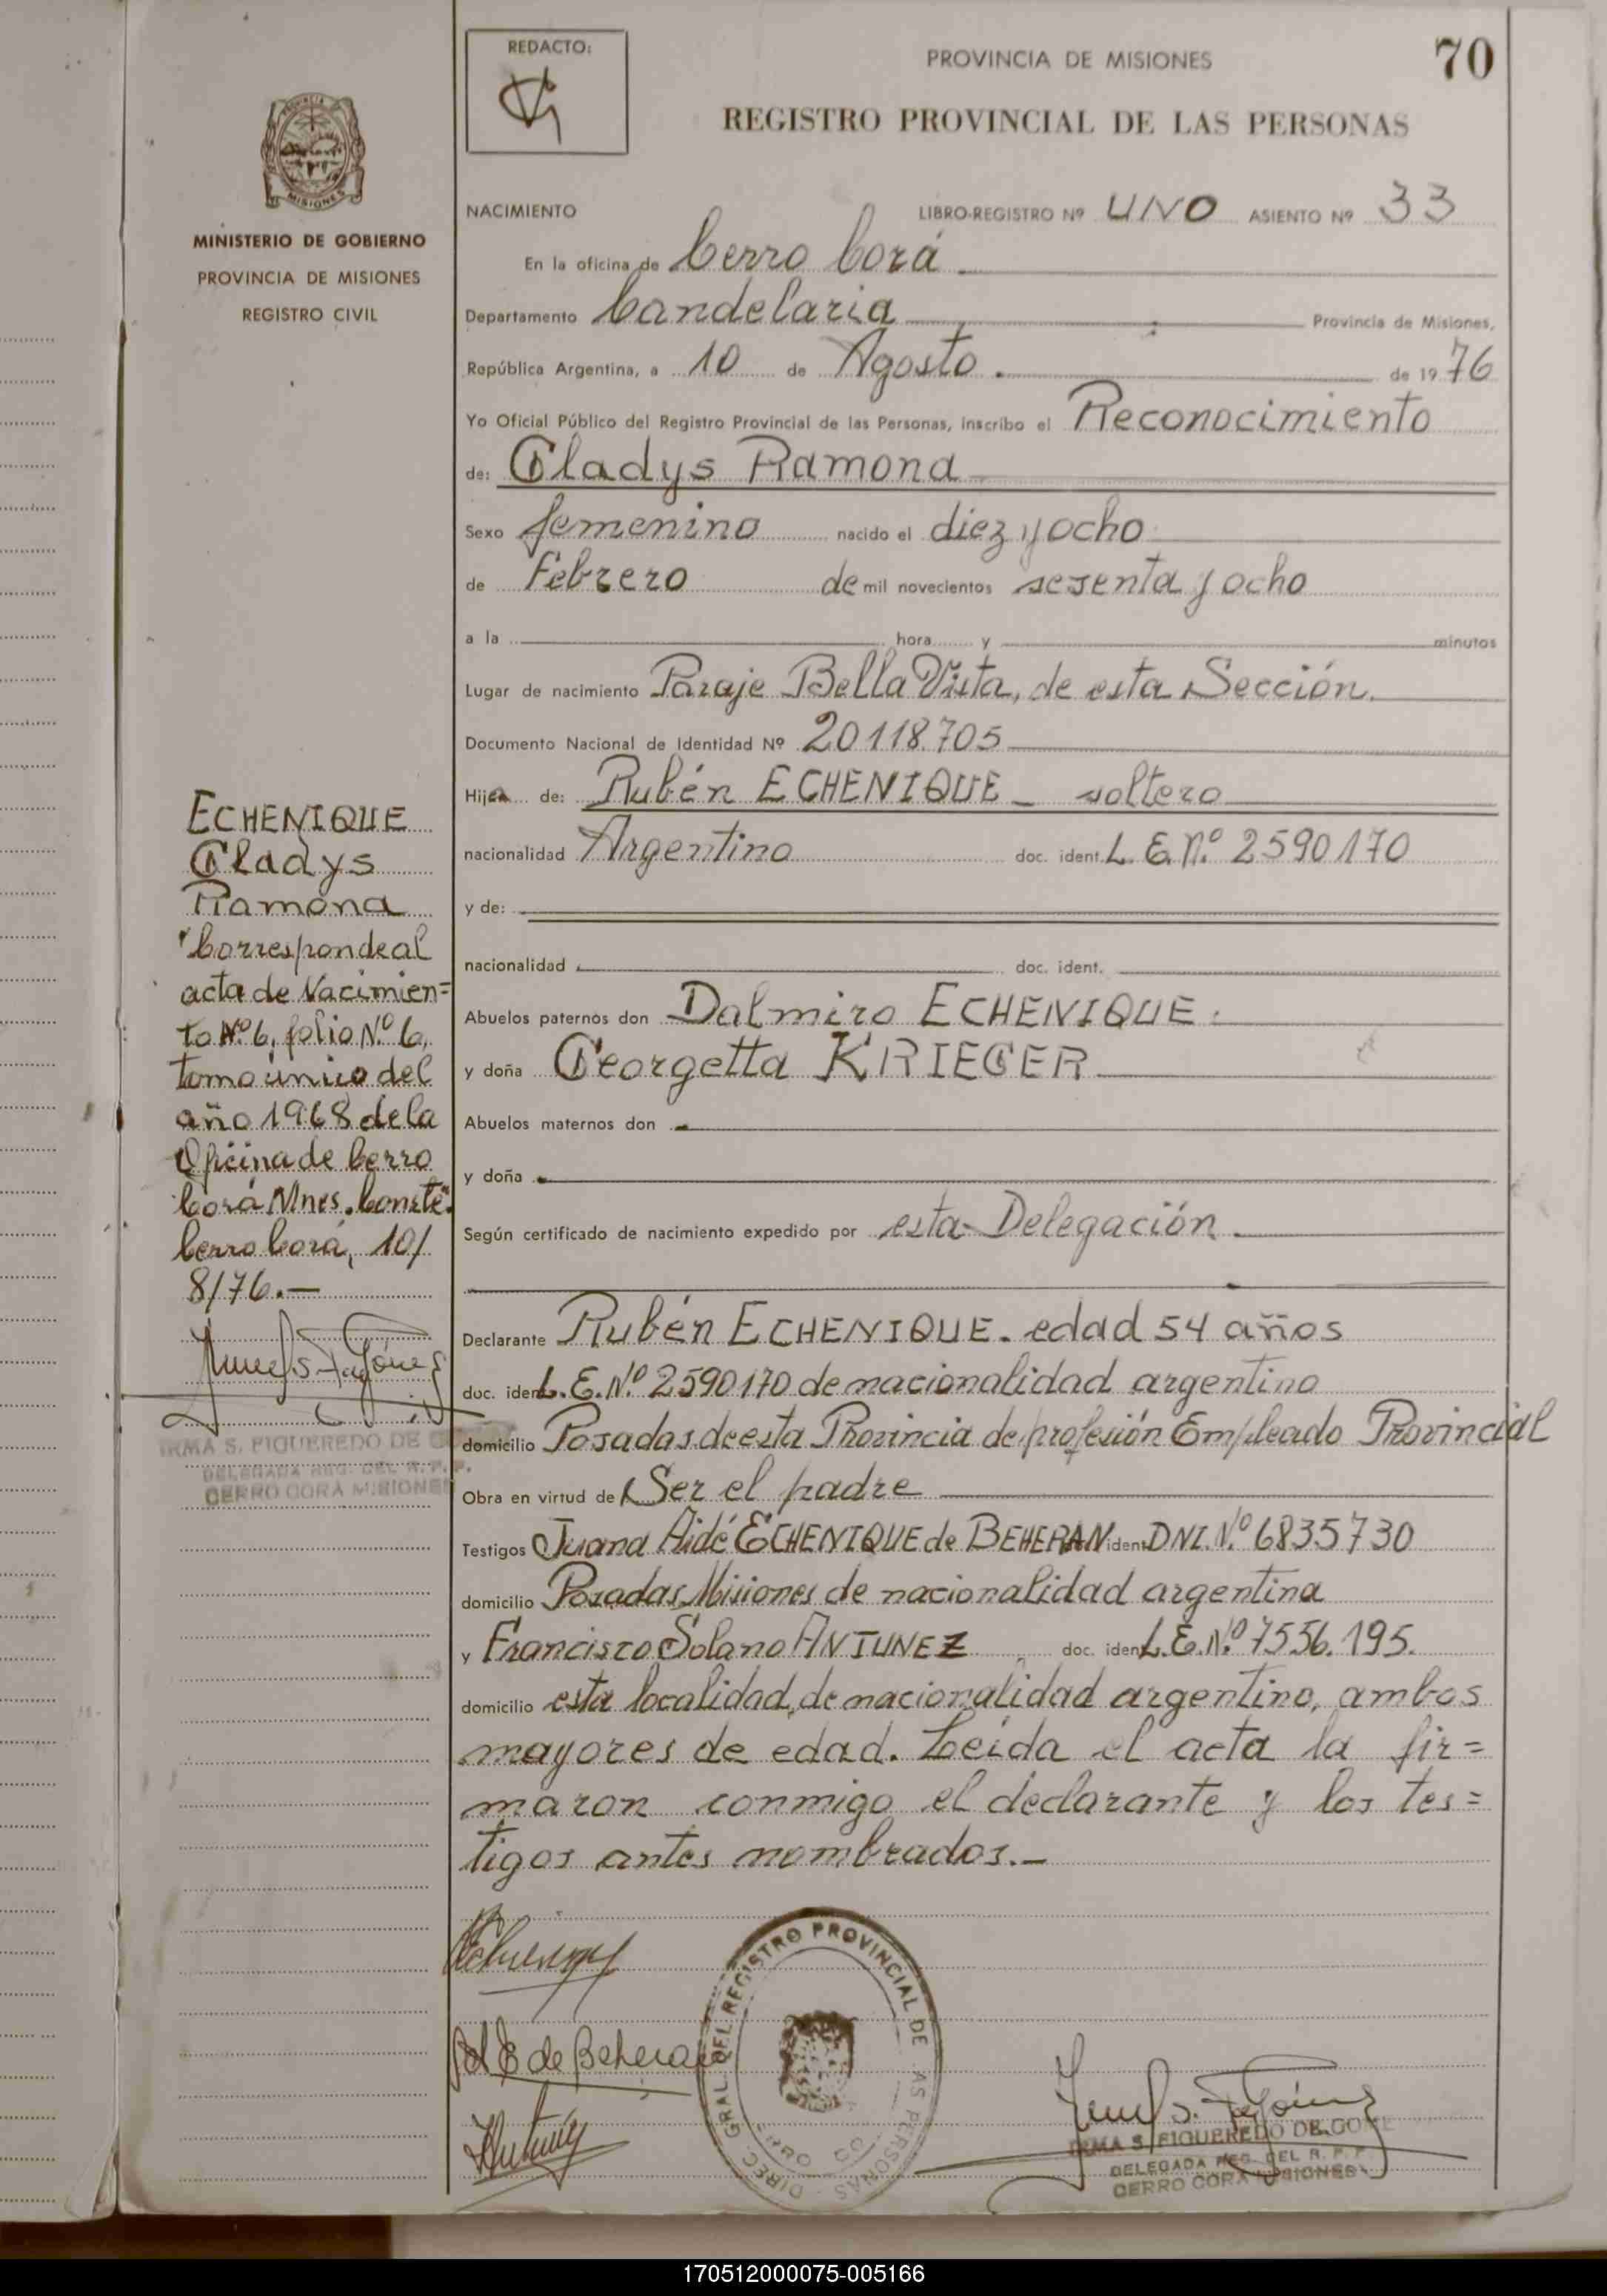 REDACTO:
PROVINCIA DE MISIONES
70
REGISTRO PROVINCIAL DE LAS PERSONAS
MISIONES
MINISTERIO DE GOBIERNO
PROVINCIA DE MISIONES
REGISTRO CIVIL
NACIMIENTO LIBRO-REGISTRO Nº UNO ASIENTO Nº 33
En la oficina de Cerro Corá
Departamento Candelaria Provincia de Misiones,
República Argentina, a 10 de Agosto. de 1976
Yo Oficial Público del Registro Provincial de las Personas, inscribo el Reconocimiento
de: Gladys Ramona
Sexo femenino nacido el diez y ocho
de Febrero de mil novecientos sesenta y ocho
a la hora y minutos
Lugar de nacimiento Paraje Bella Vista, de esta Sección.
Documento Nacional de Identidad Nº 20118.705
Hija de: Rubén ECHENIQUE - soltero
nacionalidad Argentino doc. ident. L.E.Nº 2590170
y de:
nacionalidad doc. ident.
Abuelos paternos don Dalmiro ECHENIQUE.
y doña Georgetta KRIEGER
Abuelos maternos don
y doña
Según certificado de nacimiento expedido por esta Delegación
Declarante Rubén ECHENIQUE. edad 54 años
doc. ident. L.E.Nº 2590170 de nacionalidad argentino
domicilio Posadas de esta Provincia de profesión Empleado Provincial
Obra en virtud de Ser el padre
Testigos Juana Aidé ECHENIQUE de BEHERAN ident. DNI.Nº 6835730
domicilio Posadas, Misiones de nacionalidad argentina
y Francisco Solano ANTUNEZ doc. ident. L.E.Nº 7556.195.
domicilio esta localidad, de nacionalidad argentino, ambos
mayores de edad. Leída el acta la fir=
maron conmigo el declarante y los tes=
tigos antes nombrados.-
ECHENIQUE
Gladys
Ramona
Corresponde al
acta de Nacimien=
to Nº 6, folio Nº 6,
tomo único del
año 1968 de la
Oficina de Cerro
Corá Mnes. Conste.
Cerro Corá, 10/
8/76.-
IRMA S. FIGUEREDO DE
DELEGADA REG. DEL R. P. P.
CERRO CORA MISIONES
de Beheran
DIREC. GRAL. DEL REGISTRO PROVINCIAL DE LAS PERSONAS
IRMA S. FIGUEREDO DE GOME
DELEGADA REG. DEL R. P. P.
CERRO CORA MISIONES
170512000075-005166